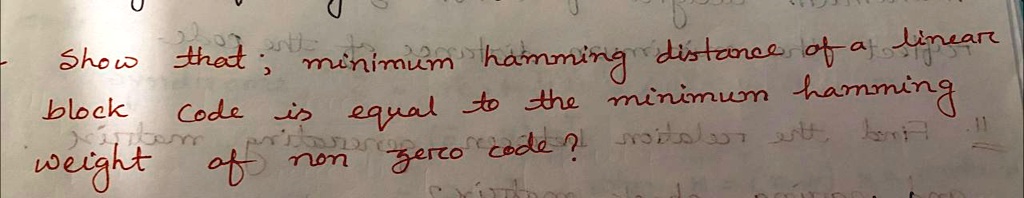 - Show that; minimum hamming distance of a linear
block code is equal to the minimum hamming
weight of non zero code?